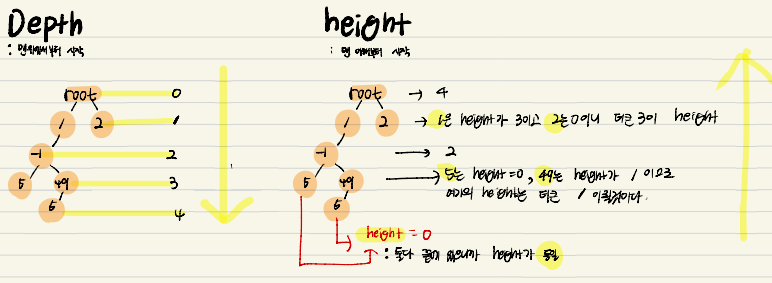 Depth
: 맨위에서부터 시작
root 0
1 2 1
-1 2
5 49 3
5 4
height
: 맨 아래부터 시작
root → 4
1 2 → 1은 height가 3이고 2는 0이니 더큰 3이 height
-1 → 2
5 49 → 5는 height=0, 49는 height가 1 이므로
여기의 height는 더큰 1 이될것이다.
5
height = 0
: 둘다 끝에 있으니까 height가 동일